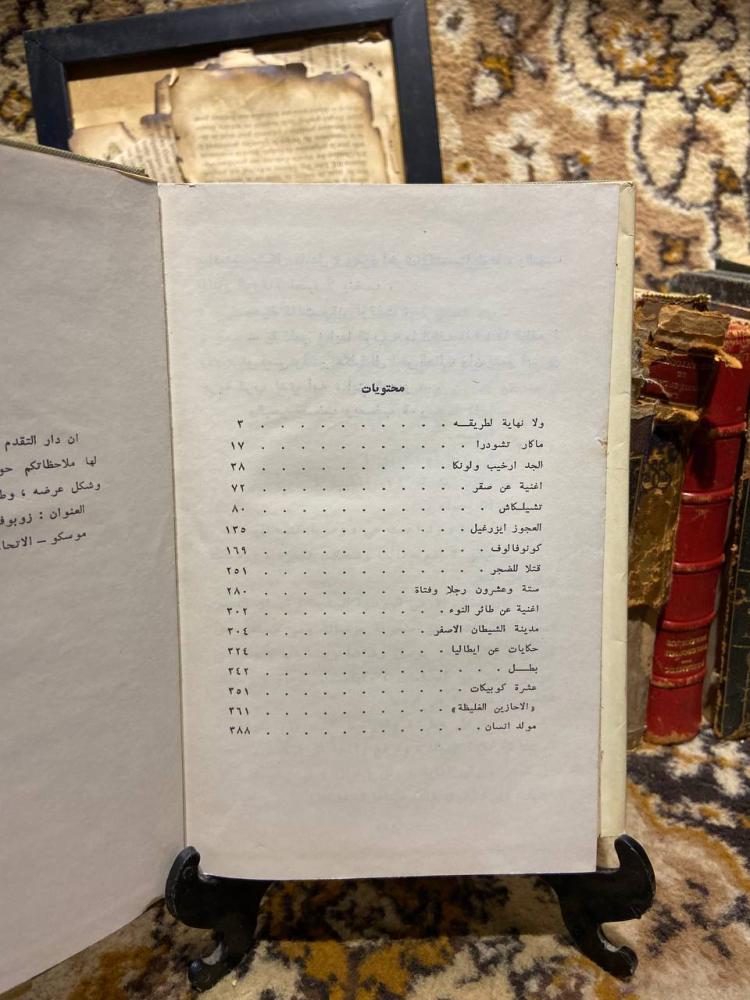 محتويات
ولا نهاية لطريقـه . . . . . . . . . . ٣
ماكار تشودرا . . . . . . . . . . ١٧
الجد ارخيب ولونكا . . . . . . . . . . ٣٨
اغنية عن صقر . . . . . . . . . . ٧٢
تشيلـكاش . . . . . . . . . . ٨٠
العجوز ايزرغيل . . . . . . . . . . ١٣٥
كونوفالوف . . . . . . . . . . ١٦٩
قتلا للضجر . . . . . . . . . . ٢٥١
ستة وعشرون رجلا وفتاة . . . . . . . . ٢٨٠
اغنية عن طائر النوء . . . . . . . . . ٣٠٢
مدينة الشيطان الاصفر . . . . . . . . ٣٠٤
حكايات عن ايطاليا . . . . . . . . . ٣٢٤
بطـــل . . . . . . . . . . . ٣٤٢
عشرة كوبيكات . . . . . . . . . . ٣٥١
«الاحازين الغليظة» . . . . . . . . . ٣٦١
مولد انسان . . . . . . . . . . ٣٨٨
ان دار التقدم
لها ملاحظاتكم حو
وشكل عرضه ، وط
العنوان : زوبوف
موسكو – الاتحا